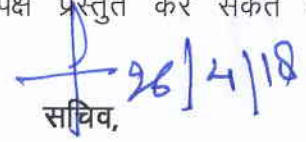 पक्ष प्रस्तुत कर सकते
26/4/18
सचिव,